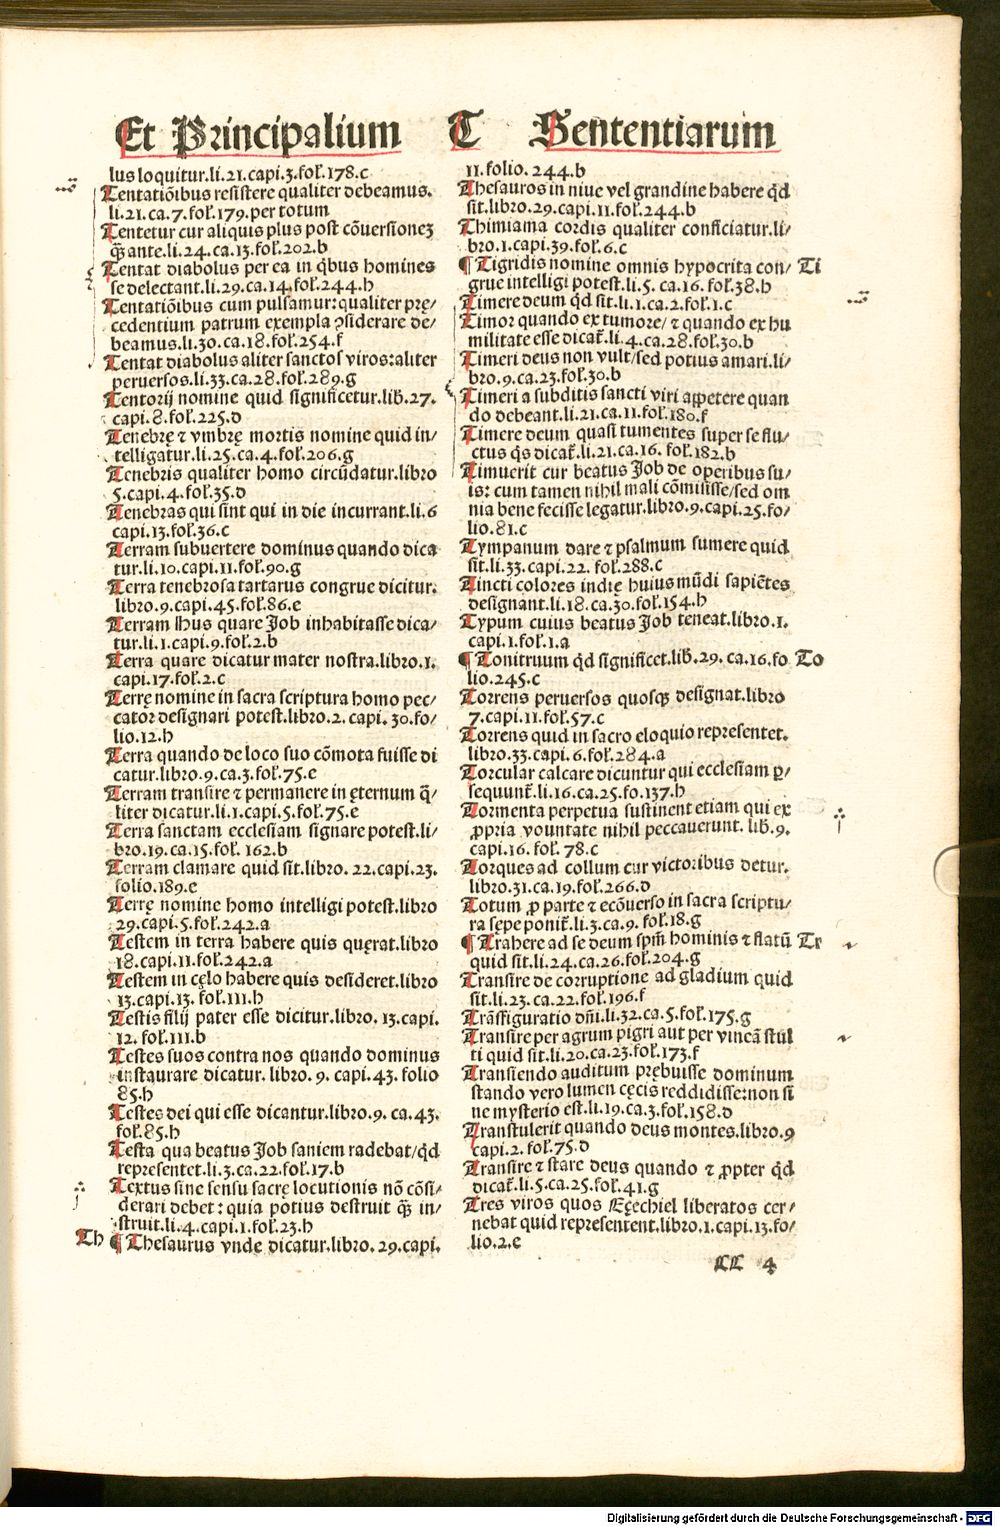 Et Principalium T Sententiarum
lus loquitur.li.21.capi.3.fol.178.c
Tentatiõibus resistere qualiter debeamus.
li.21.ca.7.fol.179.per totum
Tentetur cur aliquis plus post cõuersionez
q̃ ante.li.24.ca.13.fol.202.b
Tentat diabolus per ea in q̃bus homines
se delectant.li.29.ca.14.fol.244.h
Tentatiõibus cum pulsamur:qualiter pre̜-
cedentium patrum exempla ꝯsiderare de/
beamus.li.30.ca.18.fol.254.f
Tentat diabolus aliter sanctos viros:aliter
peruersos.li.33.ca.28.fol.289.g
Tentorij nomine quid significetur.lib̃.27.
capi.8.fol.225.d
Tenebrę ⁊ vmbrę mortis nomine quid in/
telligatur.li.25.ca.4.fol.206.g
Tenebris qualiter homo circũdatur.libro
5.capi.4.fol.35.d
Tenebras qui sint qui in die incurrant.li.6
capi.13.fol.36.c
Terram subuertere dominus quando dica
tur.li.10.capi.11.fol.90.g
Terra tenebrosa tartarus congrue dicitur.
libro.9.capi.45.fol.86.e
Terram Hus quare Job inhabitasse dica/
tur.li.1.capi.9.fol.2.b
Terra quare dicatur mater nostra.libro.1.
capi.17.fol.2.c
Terrę nomine in sacra scriptura homo pec/
cator designari potest.libro.2.capi.30.fo/
lio.12.h
Terra quando de loco suo cõmota fuisse di
catur.libro.9.ca.3.fol.75.e
Terram transire ⁊ permanere in ęternum q̃/
liter dicatur.li.1.capi.5.fol.75.e
Terra sanctam ecclesiam signare potest.li/
bro.19.ca.15.fol.162.b
Terram clamare quid sit.libro.22.capi.23.
folio.189.e
Terrę nomine homo intelligi potest.libro
29.capi.5.fol.242.a
Testem in terra habere quis quęrat.libro
18.capi.11.fol.242.a
Testem in cęlo habere quis desideret.libro
13.capi.13.fol.111.h
Testis filij pater esse dicitur.libro.13.capi.
12.fol.111.b
Testes suos contra nos quando dominus
instaurare dicatur.libro.9.capi.43.folio
85.h
Testes dei qui esse dicantur.libro.9.ca.43.
fol.85.h
Testa qua beatus Job saniem radebat/q̃d
representet.li.3.ca.22.fol.17.b
Textus sine sensu sacrę locutionis nõ cõsi/
derari debet:quia potius destruit q̃ in/
struit.li.4.capi.1.fol.23.h
Th ¶ Thesaurus vnde dicatur.libro.29.capi.
11.folio.244.b
Thesauros in niue vel grandine habere q̃d
sit.libro.29.capi.11.fol.244.b
Thimiama cordis qualiter conficiatur.li/
bro.1.capi.39.fol.6.c
¶ Tigridis nomine omnis hypocrita con/ Ti
grue intelligi potest.li.5.ca.16.fol.38.b
Timere deum q̃d sit.li.1.ca.2.fol.1.c
Timor quando ex tumore/ ⁊ quando ex hu
militate esse dicat̃.li.4.ca.28.fol.30.b
Timeri deus non vult/sed potius amari.li/
bro.9.ca.23.fol.30.b
Timeri a subditis sancti viri appetere quan
do debeant.li.21.ca.11.fol.180.f
Timere deum quasi tumentes super se flu/
ctus q̃s dicat̃.li.21.ca.16.fol.182.b
Timuerit cur beatus Job de operibus su/
is:cum tamen nihil mali cõmisisse/sed om
nia bene fecisse legatur.libro.9.capi.25.fo/
lio.81.c
Tympanum dare ⁊ psalmum sumere quid
sit.li.33.capi.22.fol.288.c
Tincti colores indię huius mũdi sapiẽtes
designant.li.18.ca.30.fol.154.h
Typum cuius beatus Job teneat.libro.1.
capi.1.fol.1.a
¶ Tonitruum q̃d significet.lib̃.29.ca.16.fo To
lio.245.c
Torrens peruersos quosq̃ designat.libro
7.capi.11.fol.57.c
Torrens quid in sacro eloquio representet.
libro.33.capi.6.fol.284.a
Torcular calcare dicuntur qui ecclesiam ꝑ/
sequunt̃.li.16.ca.25.fo.137.h
Tormenta perpetua sustinent etiam qui ex
ꝓpria vountate nihil peccauerunt.lib̃.9.
capi.16.fol.78.c
Torques ad collum cur victoribus detur.
libro.31.ca.19.fol.266.d
Totum ꝓ parte ⁊ ecõuerso in sacra scriptu/
ra sepe ponit̃.li.3.ca.9.fol.18.g
¶ Trahere ad se deum spm̃ hominis ⁊ flatũ Tr
quid sit.li.24.ca.26.fol.204.g
Transire de corruptione ad gladium quid
sit.li.23.ca.22.fol.196.f
Trãsfiguratio dñi.li.32.ca.5.fol.175.g
Transire per agrum pigri aut per vineã stul
ti quid sit.li.20.ca.23.fol.173.f
Transiendo auditum prębuisse dominum
stando vero lumen cęcis reddidisse:non si
ne mysterio est.li.19.ca.3.fol.158.d
Transtulerit quando deus montes.libro.9
capi.2.fol.75.d
Transire ⁊ stare deus quando ⁊ ꝓpter q̃d
dicat̃.li.5.ca.25.fol.41.g
Tres viros quos Ezechiel liberatos cer/
nebat quid representent.libro.1.capi.13.fo/
lio.2.e
LL 4
Digitalisierung gefördert durch die Deutsche Forschungsgemeinschaft - DFG